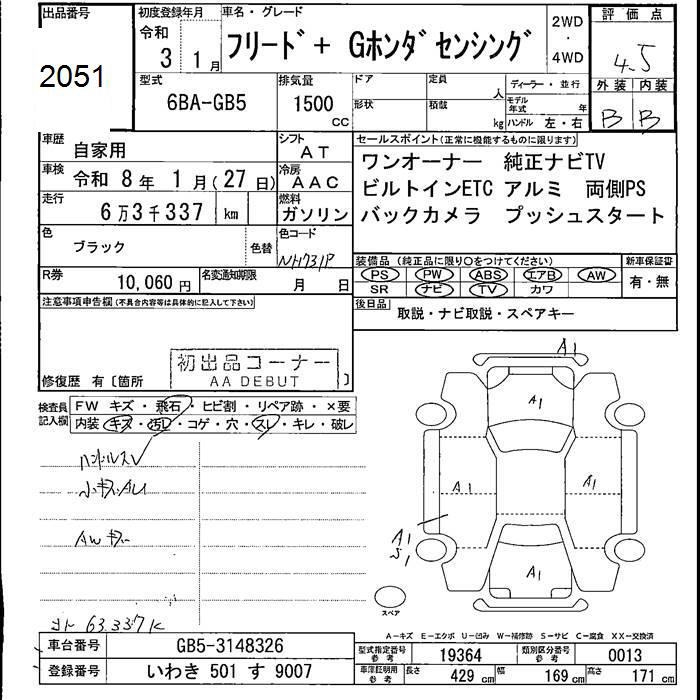 出品番号
2051
初度登録年月
令和
3 1月
車名・グレード
フリード+ Gホンダセンシング
2WD
・
4WD
評価点
4.5
外装 内装
B B
型式
6BA-GB5
排気量
1500
cc
ドア
定員
人
ディーラー・並行
形状
積載
kg
モデル年式 年
ハンドル 左・右
車歴
自家用
シフト
AT
車検
令和 8年 1月(27日)
冷房
AAC
走行
6万3千337 km
燃料
ガソリン
色
ブラック
色替
色コード
NH731P
R券
10,060円
名変通知期限
月 日
セールスポイント(正常に機能するものに限ります)
ワンオーナー 純正ナビTV
ビルトインETC アルミ 両側PS
バックカメラ プッシュスタート
装備品(純正品に限り○をつけてください)
新車保証書
PS PW ABS エアB AW
SR ナビ TV カワ
有・無
後日品
取説・ナビ取説・スペアキー
注意事項申告欄(不具合内容等は具体的に記入して下さい)
初出品コーナー
AA DEBUT
修復歴 有〔箇所 〕
検査員記入欄
FW キズ・飛石・ヒビ割・リペア跡・×要
内装 キズ・汚レ・コゲ・穴・スレ・キレ・破レ
ハンドルスレ
小キズ.AU
AWキズ
メーター 63.337K
A1
A1
A1
A1
A1
S1
A1
スペア
A-キズ E-エクボ U-凹み W-補修跡 S-サビ C-腐食 XX-交換済
車台番号
GB5-3148326
型式指定番号
参考
19364
類別区分番号
参考
0013
登録番号
いわき 501 す 9007
車庫証明用
参考
長さ 429cm 幅 169cm 高さ 171cm